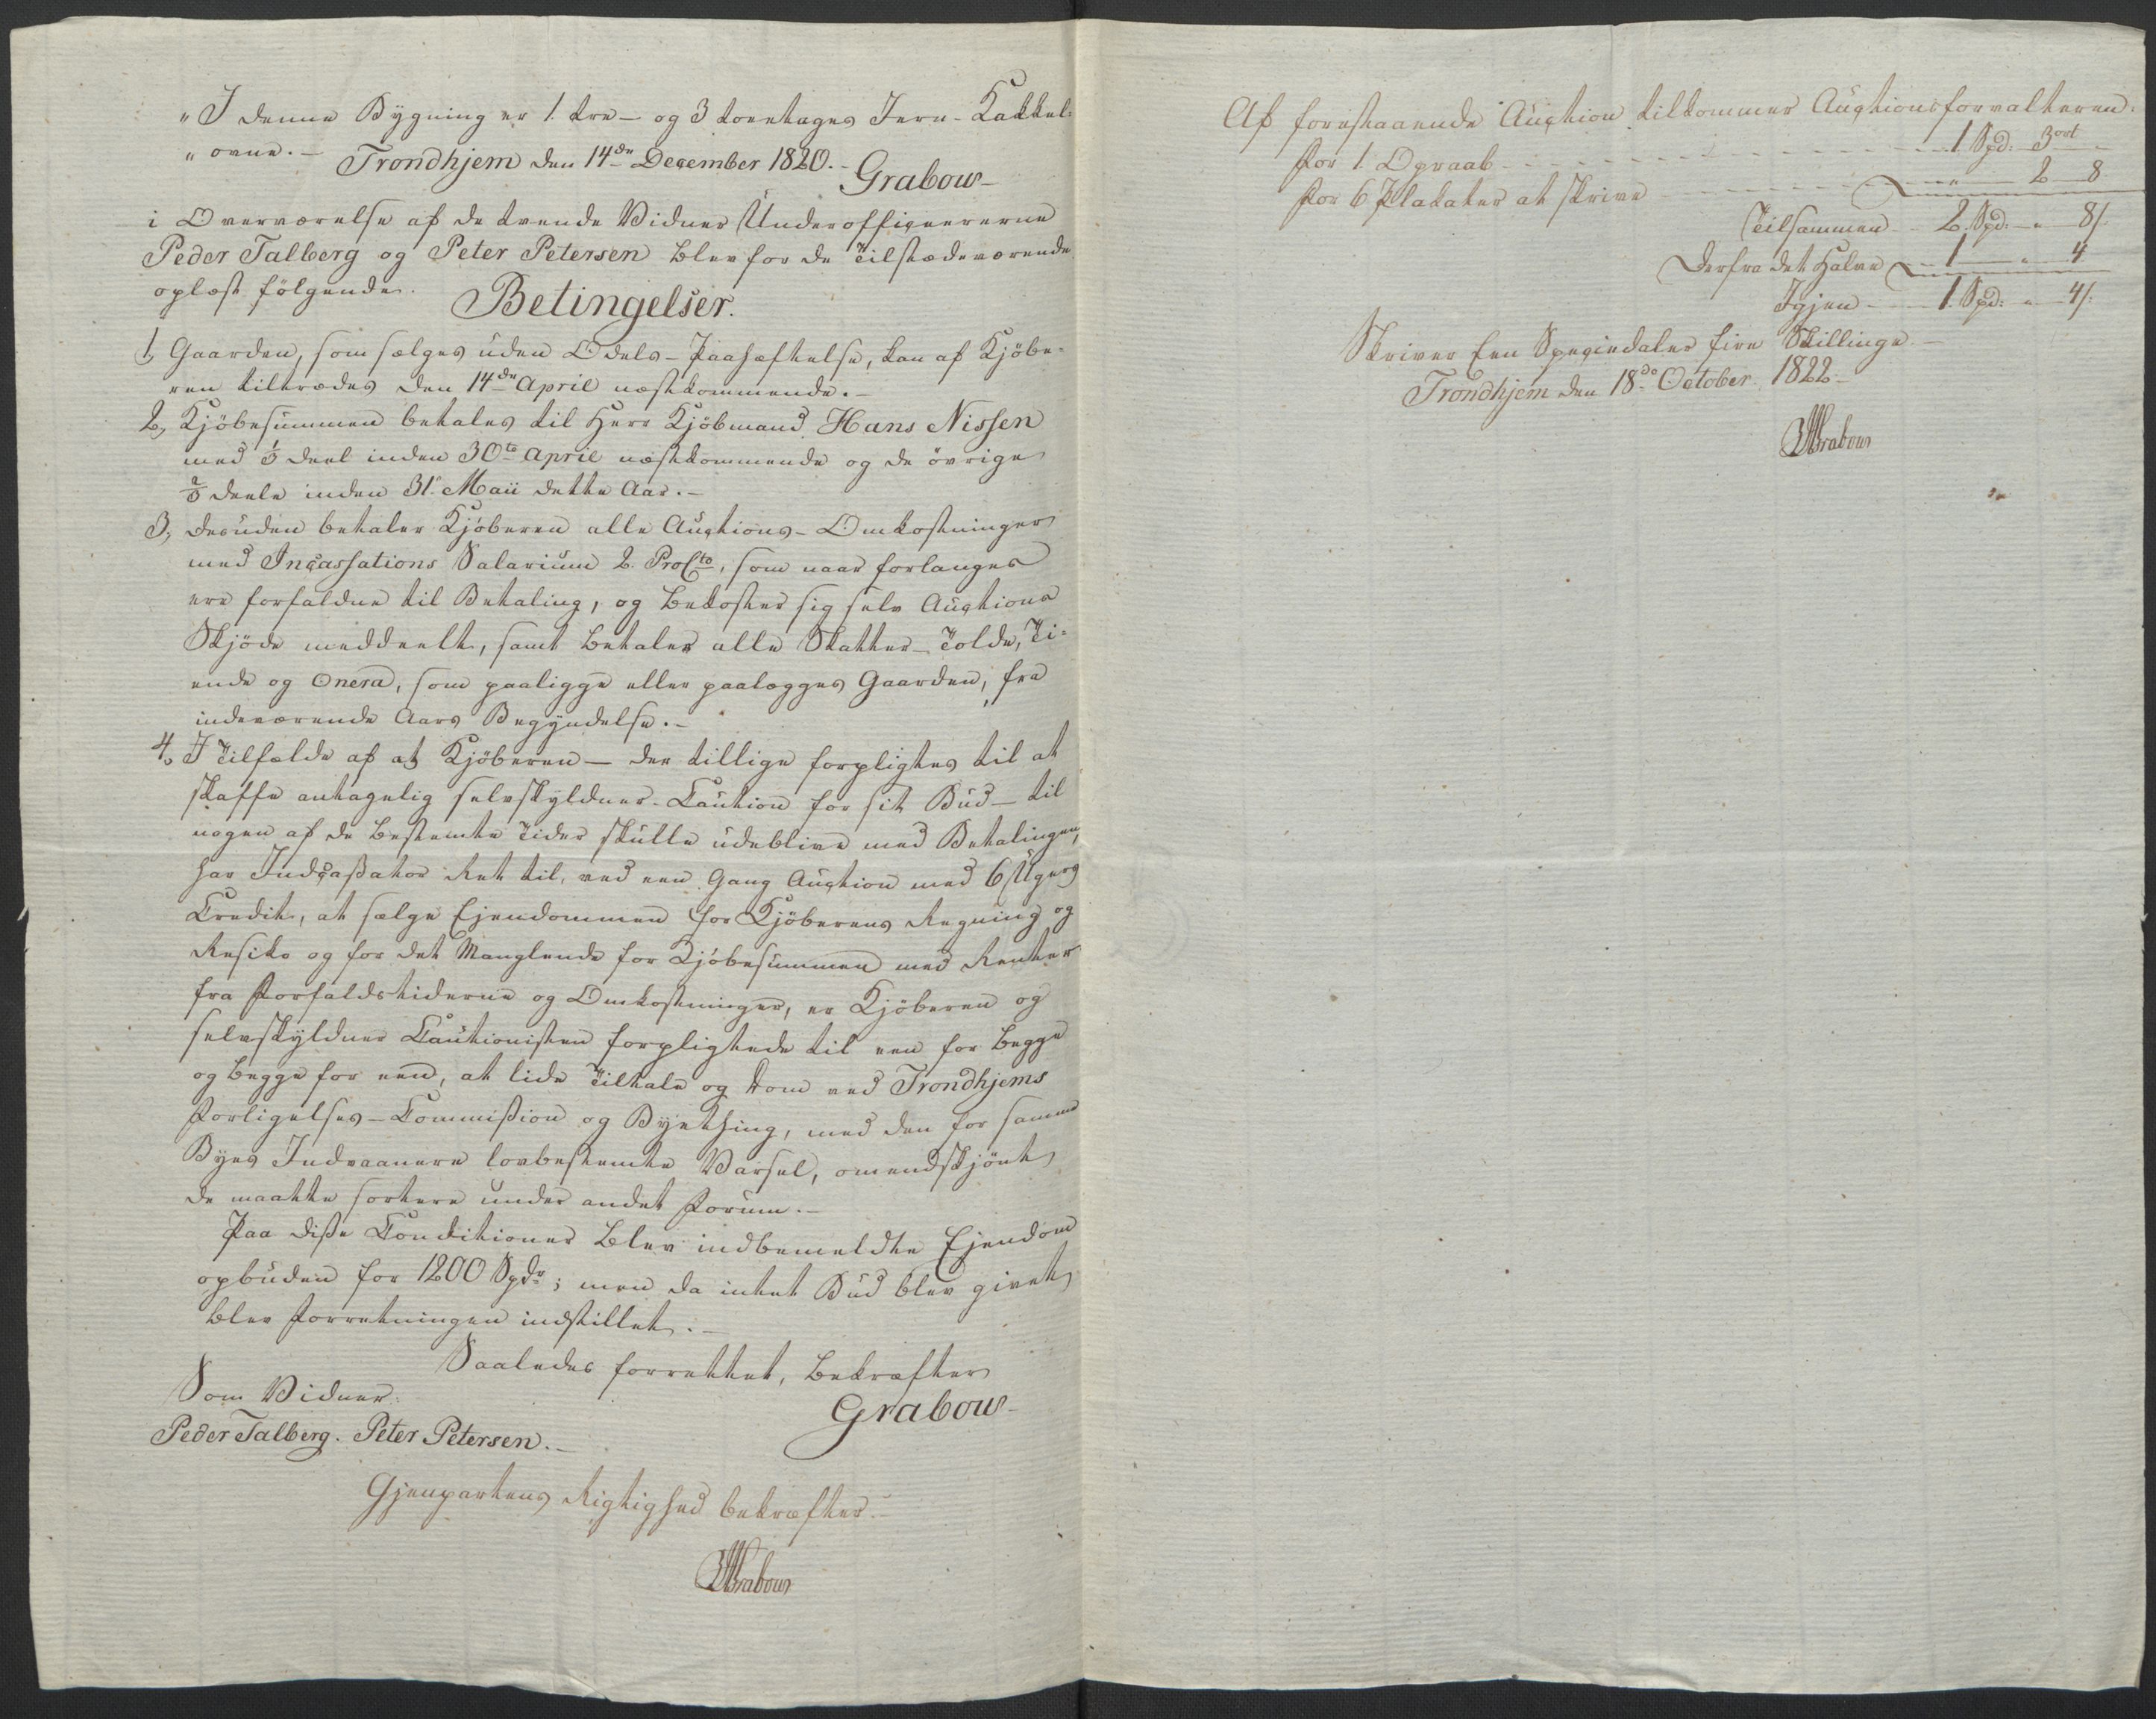 " I denne Bygning er 1 tre- og 3 toeetages Jern-Kakkel-
" ovne. - Trondhjem den 14de December 1820. -
Grabow -
i Overværelse af de tvende Vidner Underofficeererne
Peder Talberg og Peter Petersen blev for de Tilstædeværende
oplæst følgende.
Betingelser.
1, Gaarden, som sælges uden Odels-Paahæftelse, kan af Kjöbe-
ren tiltrædes den 14de April næstkommende. -
2, Kjöbesummen betales til Herr Kjöbmand Hans Nissen
med 1/3 Deel inden 30te April næstkommende og de övrige
2/3 Deele inden 31te Maii dette Aar. -
3, desuden betaler Kjöberen alle Auctions-Omkostninger
med Incassations Salarium 2. ProCto, som naar forlanges
ere forfaldne til Betaling, og bekoster sig selv Auctions
Skjöde meddeelt, samt betaler alle Skatter- Tolde, Ti-
ende og Onera, som paaligge eller paalægges Gaarden, fra
indeværende Aars Begyndelse. -
4, I Tilfælde af at Kjöberen - der tillige forpligtes til at
skaffe antagelig selvskyldner-Caution for sit Bud - til
nogen af de bestemte Tider skulle udeblive med Betalingen,
har Indcassator Ret til, ved een Gang Auction med 6 Ugers
Credit, at sælge Ejendommen for Kjöberens Regning og
Resiko og for det Manglende for Kjöbesummen med Renter
fra Forfaldstiderne og Omkostninger, er Kjöberen og
selvskyldner Cautionisten forpligtede til een for begge
og begge for een, at lide Tiltale og Dom ved Trondhjems
Forligelses-Commission og Byething, med den for samme
Byes Indvaanere lovbestemte Varsel, omendskjönt
de maatte sortere under andet Forum. -
Paa disse Conditioner blev indbemeldte Ejendom
opbuden for 1200 Spdr; men da intet Bud blev givet,
blev Forretningen indstillet. -
Saaledes forrettet, bekræfter
Grabow -
Som Vidner.
Peder Talberg. Peter Petersen. -
Gjenpartens Rigtighed bekræfter. -
Grabow
Af forestaaende Auction tilkommer Auctionsforvalteren:
For 1 Opraab - - - 1 Spd: 3 ort -
For 6 Plakater at skrive - - - " 2 8
Tilsammen - 2. Spd: - " 8/:
Derfra det Halve - 1 " 4
Igjen - 1. Spd: " 4/:
Skriver Een Speciedaler fire Skillinge. -
Trondhjem den 18de October 1822 -
Grabow